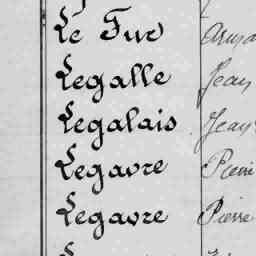 Le Fur
Legalle Jean
Legalais Jean
Legavre Pierre
Legavre Pierre